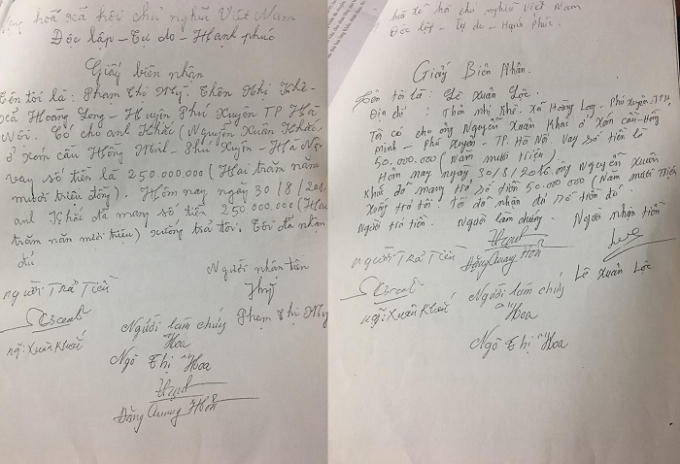 hoà xã hội chủ nghĩa Việt Nam
Độc lập - Tự do - Hạnh phúc
Giấy biên nhận
Tên tôi là: Phạm Thị Mỹ. Thôn Nhị Khê-
xã Hoàng Long - Huyện Phú Xuyên TP Hà
Nội. Có cho anh Khải (Nguyễn Xuân Khải)
ở xóm cầu Hồng Minh - Phú Xuyên - Hà Nội
vay số tiền là 250.000.000 (Hai trăm năm
mươi triệu đồng). Hôm nay ngày 30/8/201
anh Khải đã mang số tiền 250.000.000 (Hai
trăm năm mươi triệu) xuống trả tôi. Tôi đã nhận
đủ
Người nhận tiền
Người Trả Tiền
Thuỷ
Phạm Thị Mỹ
ng: Xuân Khải
Người làm chứng
Hoa
Ngô Thị Hoa
Đặng Quang
hoà xã hội chủ nghĩa Việt Nam
Độc lập - Tự do - Hạnh phúc.
Giấy Biên Nhận.
Tên tôi là: Lê Xuân Lộc.
Địa chỉ: Thôn nhị Khê. xã Hoàng Long - Phú xuyên. TP HN
Tôi có cho ông Nguyễn Xuân Khải ở xóm cầu - Hồng
Minh - Phú Xuyên - TP. Hà Nội. Vay số tiền là
50.000.000 (Năm mươi triệu).
Hôm nay ngày 30/8/2016. ông Nguyễn Xuân
Khải đã mang trả số tiền 50.000.000 (Năm mươi triệu)
xuống trả tôi. Tôi đã nhận đủ số tiền đó.
Người trả tiền. Người làm chứng. Người nhận tiền
Người Trả Tiền
Đặng Quang
Lê Xuân Lộc
ng: Xuân Khải
Người làm chứng
Hoa
Ngô Thị Hoa